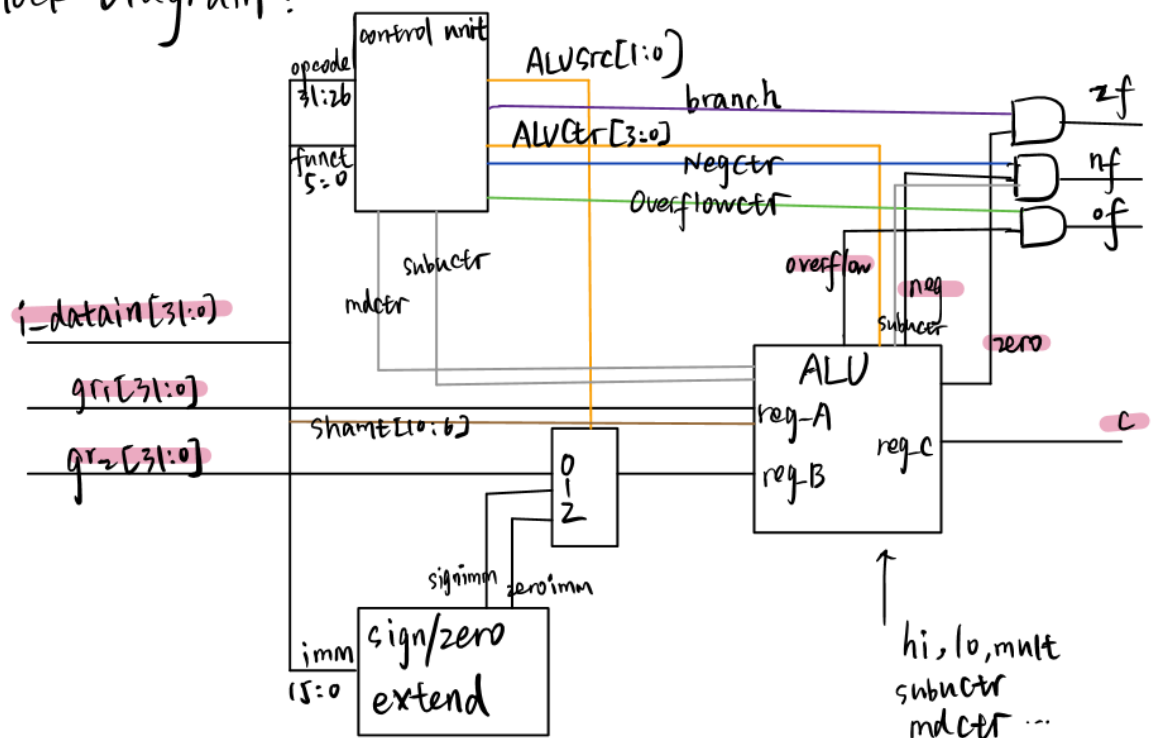 block Diagram:
control unit
opcode
31:26
funct
5:0
ALUSrc[1:0]
branch
ALUCtr[3:0]
NegCtr
Overflowctr
zf
nf
of
subuctr
mdctr
overflow
neg
subuctr
zero
i_datain[31:0]
gr1[31:0]
shamt[10:6]
gr2[31:0]
ALU
reg_A
reg_B
reg_C
c
0
1
2
signimm
zeroimm
imm
15:0
sign/zero
extend
hi, lo, mult
subuctr
mdctr ...